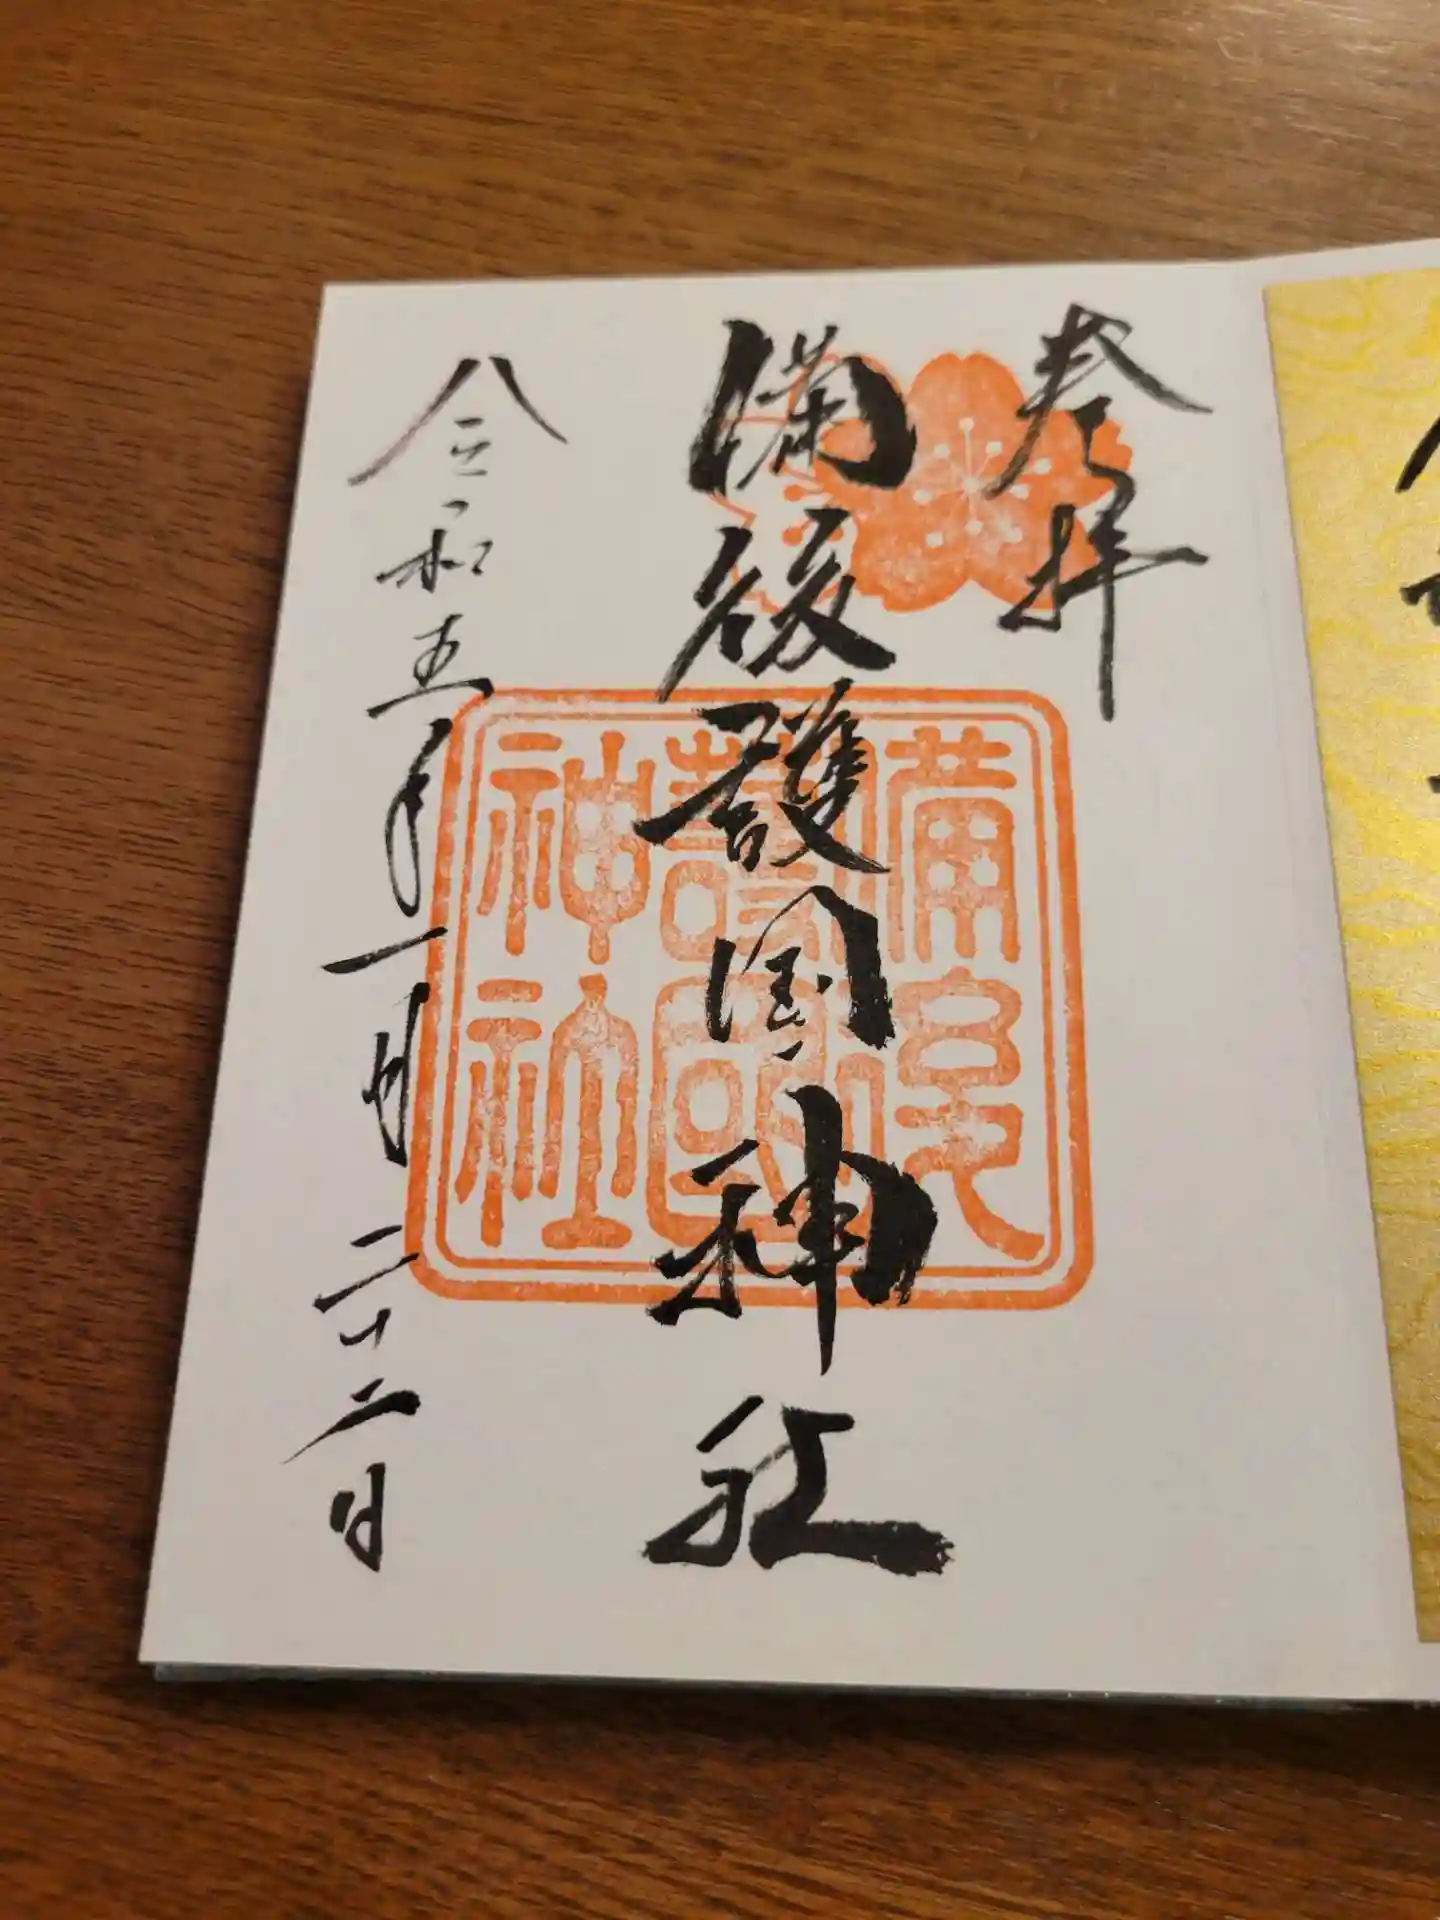 奉拝
備後護國神社
備後
護國
神社
令和五年一月二十二日